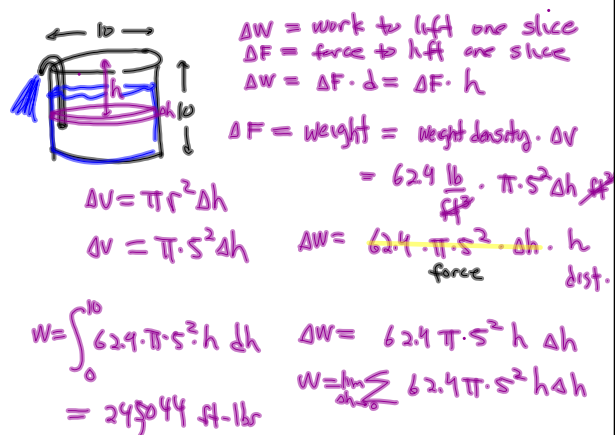 10
ΔW = work to lift one slice
ΔF = force to lift one slice
ΔW = ΔF · d = ΔF · h
h
Δh
10
ΔF = Weight = weight density · ΔV
= 62.4 lb/ft³ · π·5²Δh ft³
ΔV = πr²Δh
ΔV = π·5²Δh
ΔW = 62.4·π·5²·Δh · h
force
dist.
W = ∫₀¹⁰ 62.4·π·5²·h dh
ΔW = 62.4π·5² h Δh
W = lim Δh→0 Σ 62.4π·5² hΔh
= 245044 ft-lbs